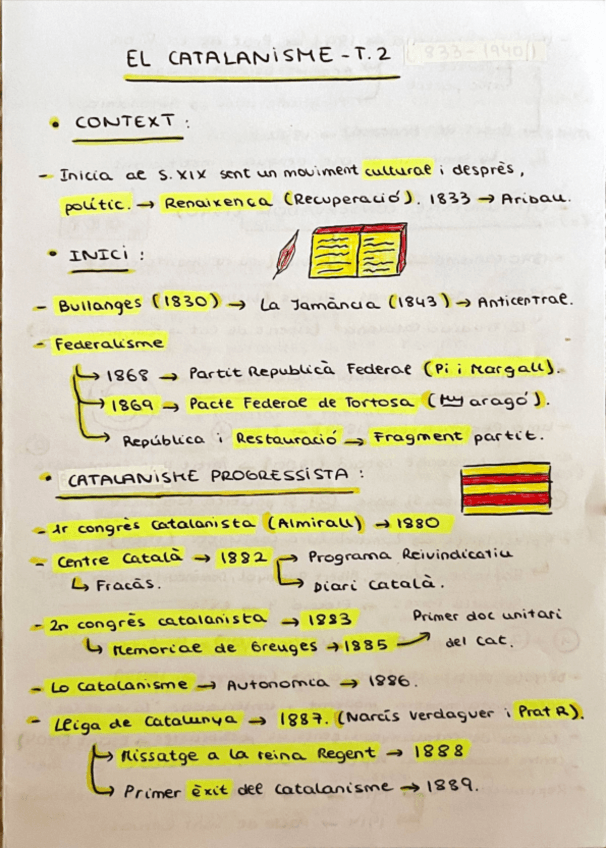 EL CATALANISME - T.2 (1833-1940)
• CONTEXT:
- Inicia al S. XIX sent un moviment cultural i desprès,
polític. → Renaixença (Recuperació). 1833 → Aribau.
• INICI:
- Bullanges (1830) → La Jamància (1843) → Anticentral.
- Federalisme
↳ 1868 → Partit Republicà Federal (Pi i Margall).
↳ 1869 → Pacte Federal de Tortosa (aragó).
↳ República i Restauració → Fragment partit.
• CATALANISME PROGRESSISTA:
- 1r congrès catalanista (Almirall) → 1880
- Centre Català → 1882 → Programa Reivindicatiu
↳ Fracàs. ↳ Diari Català.
- 2n congrès catalanista → 1883 Primer doc unitari
↳ Memorial de Greuges → 1885 → del Cat.
- Lo Catalanisme → Autonomia → 1886.
- Lliga de Catalunya → 1887. (Narcís Verdaguer i Prat R).
↳ Missatge a la reina Regent → 1888
↳ Primer èxit del Catalanisme → 1889.